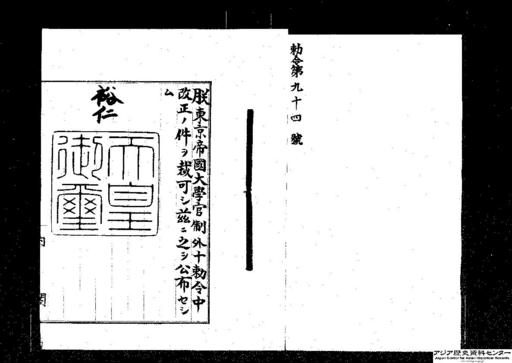 勅令第九十四號
朕東京帝國大學官制外十勅令中
改正ノ件ヲ裁可シ茲ニ之ヲ公布セシ
ム
裕仁
天皇
御璽
内閣
アジア歴史資料センター
Japan Center for Asian Historical Records